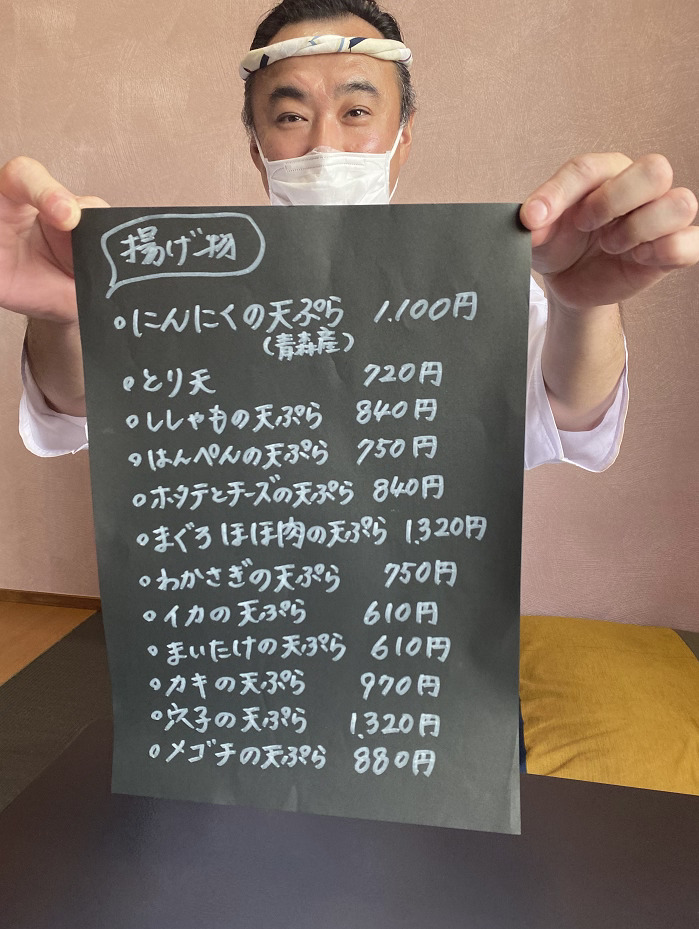 揚げ物
○にんにくの天ぷら 1.100円
(青森産)
○とり天 720円
○ししゃもの天ぷら 840円
○はんぺんの天ぷら 750円
○ホタテとチーズの天ぷら 840円
○まぐろほほ肉の天ぷら 1.320円
○わかさぎの天ぷら 750円
○イカの天ぷら 610円
○まいたけの天ぷら 610円
○カキの天ぷら 970円
○穴子の天ぷら 1.320円
○メゴチの天ぷら 880円